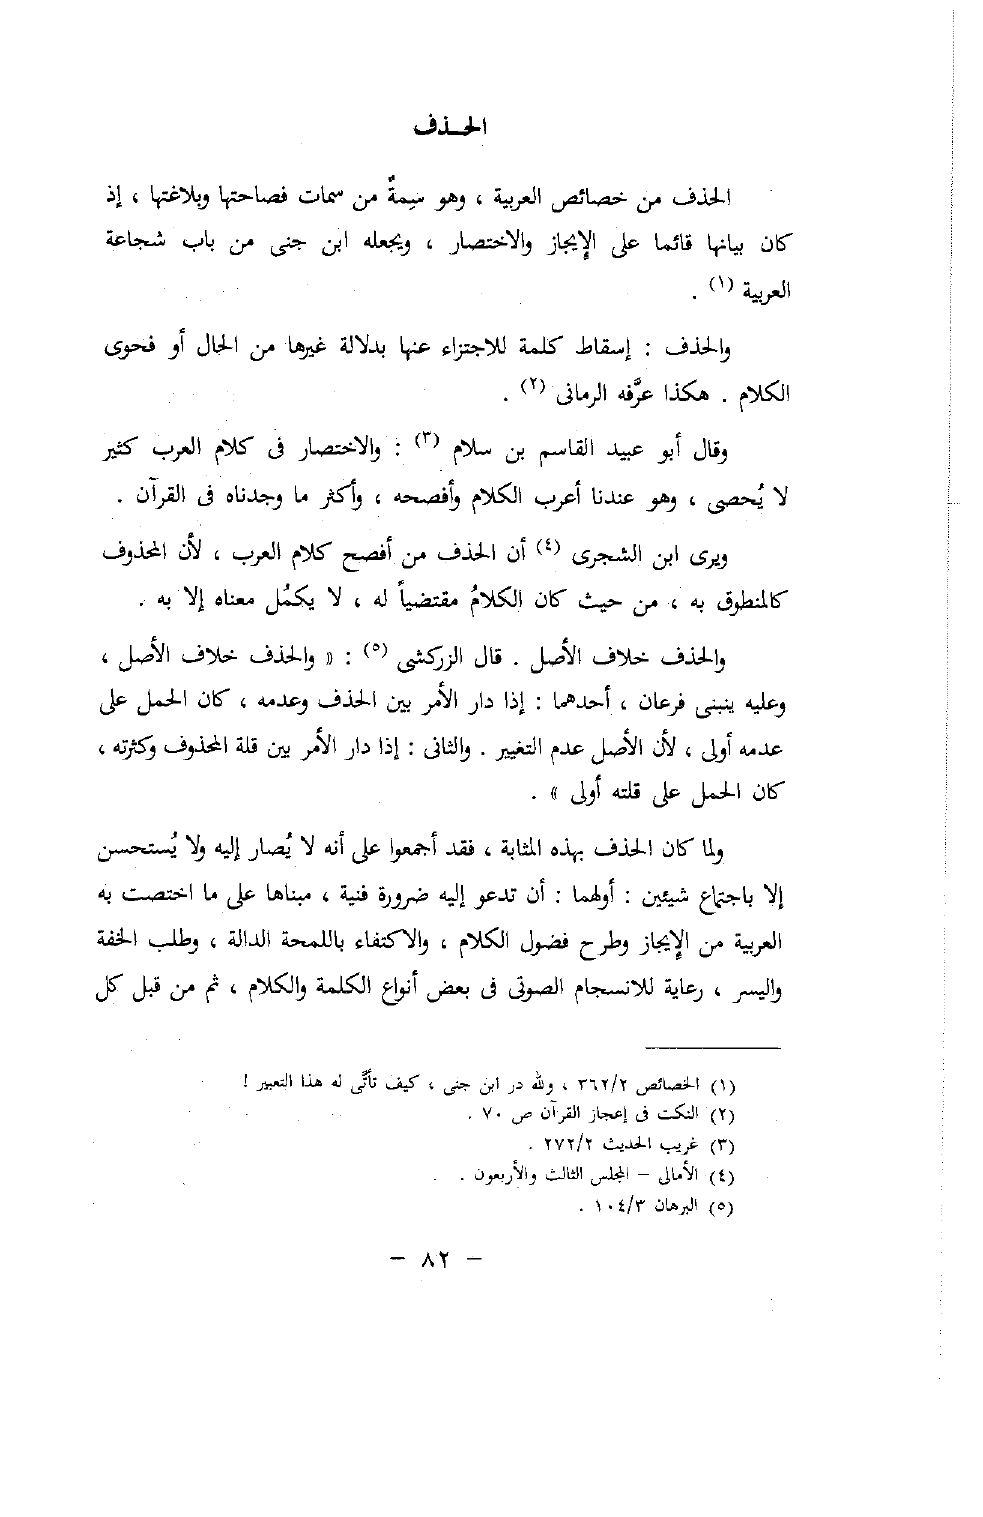 الحـذف
الحذف من خصائص العربية ، وهو سِيمةٌ من سمات فصاحتها وبلاغتها ، إذ
كان بيانها قائما على الإيجاز والاختصار ، ويجعله ابن جنى من باب شجاعة
العربية (١) .
والحذف : إسقاط كلمة للاجتزاء عنها بدلالة غيرها من الحال أو فحوى
الكلام . هكذا عرَّفه الرمانى (٢) .
وقال أبو عبيد القاسم بن سلام (٣) : والاختصار فى كلام العرب كثير
لا يُحصى ، وهو عندنا أعرب الكلام وأفصحه ، وأكثر ما وجدناه فى القرآن .
ويرى ابن الشجرى (٤) أن الحذف من أفصح كلام العرب ، لأن المحذوف
كالمنطوق به ، من حيث كان الكلامُ مقتضياً له ، لا يكمُل معناه إلا به .
والحذف خلاف الأصل . قال الزركشى (٥) : « والحذف خلاف الأصل ،
وعليه ينبنى فرعان ، أحدهما : إذا دار الأمر بين الحذف وعدمه ، كان الحمل على
عدمه أولى ، لأن الأصل عدم التغيير . والثانى : إذا دار الأمر بين قلة المحذوف وكثرته ،
كان الحمل على قلته أولى » .
ولما كان الحذف بهذه المثابة ، فقد أجمعوا على أنه لا يُصار إليه ولا يُستحسن
إلا باجتماع شيئين : أولهما : أن تدعو إليه ضرورة فنية ، مبناها على ما اختصت به
العربية من الإيجاز وطرح فضول الكلام ، والاكتفاء باللمحة الدالة ، وطلب الخفة
واليسر ، رعاية للانسجام الصوتى فى بعض أنواع الكلمة والكلام ، ثم من قبل كل
(١) الخصائص ٣٦٢/٢ ، ولله در ابن جنى ، كيف تأتَّى له هذا التعبير !
(٢) النكت فى إعجاز القرآن ص ٧٠ .
(٣) غريب الحديث ٢٧٢/٢ .
(٤) الأمالى – المجلس الثالث والأربعون .
(٥) البرهان ١٠٤/٣ .
– ٨٢ –